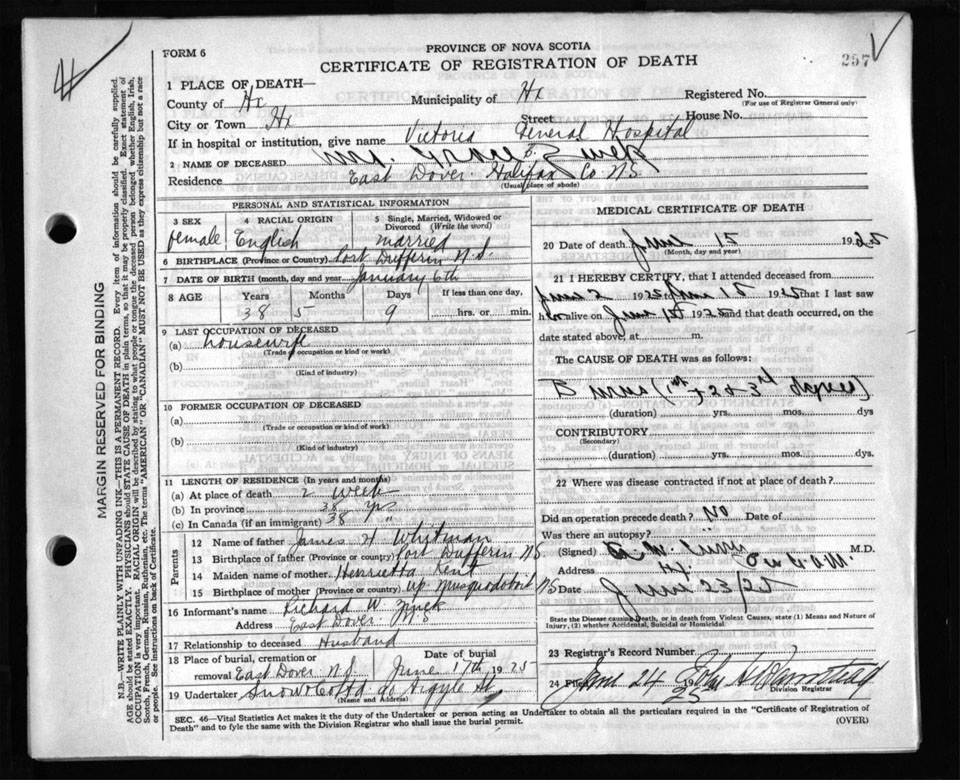 FORM 6
PROVINCE OF NOVA SCOTIA
CERTIFICATE OF REGISTRATION OF DEATH
257
1 PLACE OF DEATH—
County of Hx Municipality of Hx Registered No.
(For use of Registrar General only)
City or Town Hx Street House No.
If in hospital or institution, give name Victoria General Hospital
2 NAME OF DECEASED Mrs. Grace E. Zinck
Residence East Dover Halifax Co NS
(Usual place of abode)
PERSONAL AND STATISTICAL INFORMATION
3 SEX female
4 RACIAL ORIGIN English
5 Single, Married, Widowed or Divorced (Write the word) married
6 BIRTHPLACE (Province or Country) Port Dufferin N.S.
7 DATE OF BIRTH (month, day and year January 6th
8 AGE Years Months Days If less than one day,
38 5 9 hrs. or min.
9 LAST OCCUPATION OF DECEASED
(a) housewife
(Trade occupation or kind or work)
(b)
(Kind of industry)
10 FORMER OCCUPATION OF DECEASED
(a)
(Trade or occupation or kind of work)
(b)
(Kind of industry)
11 LENGTH OF RESIDENCE (In years and months)
(a) At place of death 2 week
(b) In province 38 yr
(c) In Canada (if an immigrant) 38 "
Parents
12 Name of father James H Whitman
13 Birthplace of father (Province or country) Port Dufferin NS
14 Maiden name of mother Henrietta Kent
15 Birthplace of mother (Province or country) Up Musquodoboit NS
16 Informant's name Richard W Zinck
Address East Dover N.S
17 Relationship to deceased Husband
18 Place of burial, cremation or removal East Dover N.S. Date of burial June 17th 1925
19 Undertaker Snow & Co Ltd 90 Argyle St
(Name and Address)
MEDICAL CERTIFICATE OF DEATH
20 Date of death June 15 1925
(Month, day and year)
21 I HEREBY CERTIFY, that I attended deceased from
June 2 1925 June 15 1925 that I last saw
her alive on June 15t 1925 and that death occurred, on the
date stated above, at m.
The CAUSE OF DEATH was as follows:
Burns (1st, 2d & 3rd degree)
(duration) yrs. mos. dys
CONTRIBUTORY
(Secondary)
(duration) yrs. mos. dys.
22 Where was disease contracted if not at place of death?
Did an operation precede death? NO Date of
Was there an autopsy?
(Signed) M.D.
Address Hx
Date June 23/25
State the Disease causing Death, or in death from Violent Causes, state (1) Means and Nature of
Injury, (2) whether Accidental, Suicidal or Homicidal.
23 Registrar's Record Number
24 Filed June 24 1925 John
Division Registrar
SEC. 46—Vital Statistics Act makes it the duty of the Undertaker or person acting as Undertaker to obtain all the particulars required in the "Certificate of Registration of
Death" and to fyle the same with the Division Registrar who shall issue the burial permit. (OVER)
MARGIN RESERVED FOR BINDING
N.B.—WRITE PLAINLY WITH UNFADING INK—THIS IS A PERMANENT RECORD. Every item of information should be carefully supplied.
AGE should be stated EXACTLY. PHYSICIANS should STATE CAUSE OF DEATH in plain terms, so that it may be properly classified. Exact statement of
OCCUPATION is very important. RACIAL ORIGIN will be described by stating to what people or tongue the deceased person belonged whether English, Irish,
Scotch, French, German, Russian, Ruthenian, etc. The terms "AMERICAN" OR "CANADIAN" MUST NOT BE USED as they express citizenship but not a race
or people. See instructions on back of Certificate.